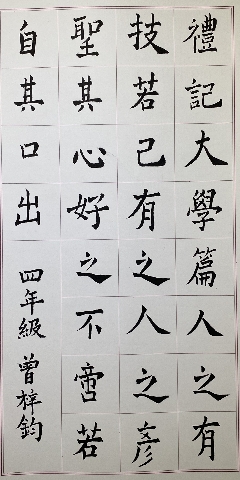 禮記大學篇人之有
技若己有之人之彥
聖其心好之不啻若
自其口出
四年級曾梓鈞